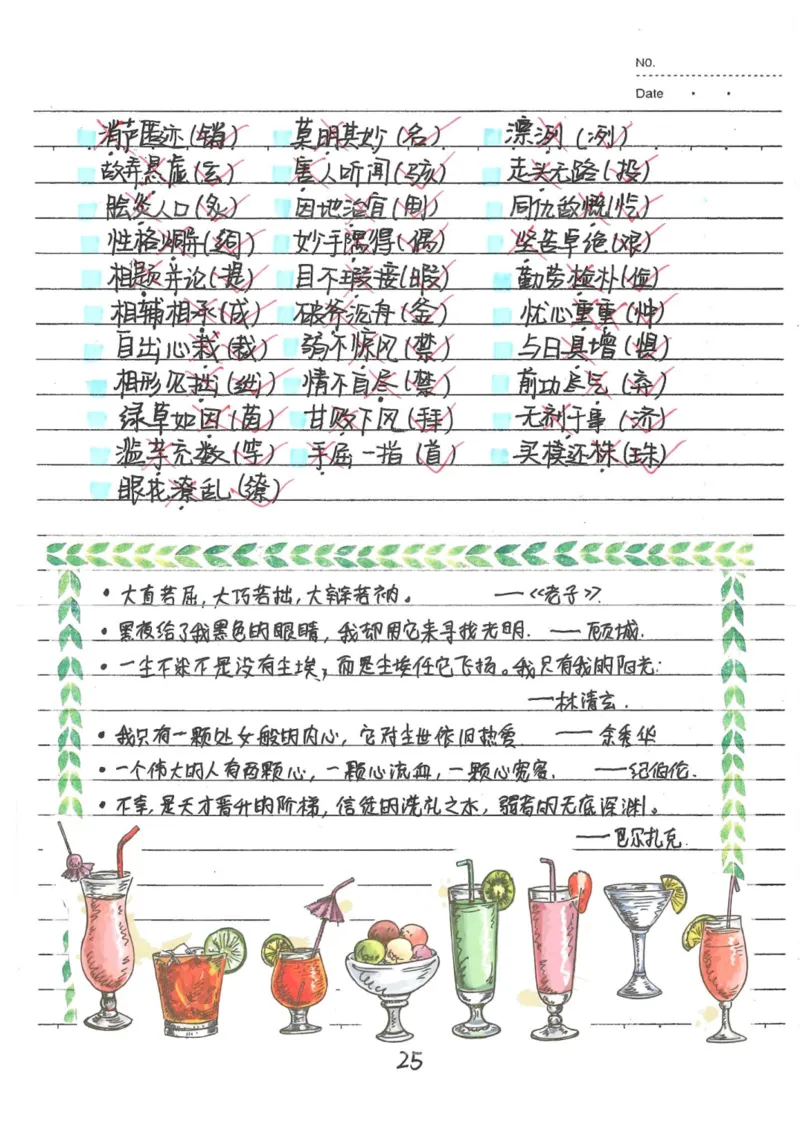 NO.
Date
消声匿迹(销) 莫明其妙(名) 漂洌(冽)
故弄悬虚(玄) 害人听闻(骇) 走头无路(投)
脍炎人口(炙) 因地治宜(制) 同仇敌慨(忾)
性格炯异(迥) 妙手隅得(偶) 坚苦卓绝(艰)
相题并论(提) 目不瑕接(暇) 勤劳检朴(俭)
相辅相承(成) 破斧沉舟(釜) 忧心重重(忡)
自出心栽(裁) 弱不惊风(禁) 与日具增(俱)
相形见拙(绌) 情不自尽(禁) 前功尽气(弃)
绿草如因(茵) 甘败下风(拜) 无剂于事(济)
滥芋充数(竽) 手屈一指(首) 买椟还株(珠)
眼花潦乱(缭)
• 大直若屈,大巧若拙,大辩若讷。 ——《老子》.
• 黑夜给了我黑色的眼睛,我却用它来寻找光明. ——顾城.
• 一尘不染不是没有尘埃,而是尘埃任它飞扬。我只有我的阳光.
——林清玄.
• 我只有一颗处女般的内心,它对尘世依旧热爱. ——余秀华
• 一个伟大的人有两颗心,一颗心流血,一颗心宽容. ——纪伯伦.
• 不幸,是天才晋升的阶梯,信徒的洗礼之水,弱者的无底深渊。
——巴尔扎克.
25